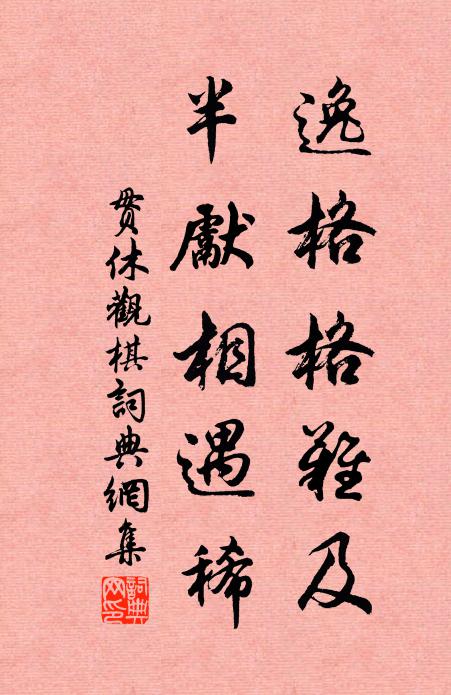 逸格格難及
半獻相遇稀
貫休觀棋詞典網集
詞典網印